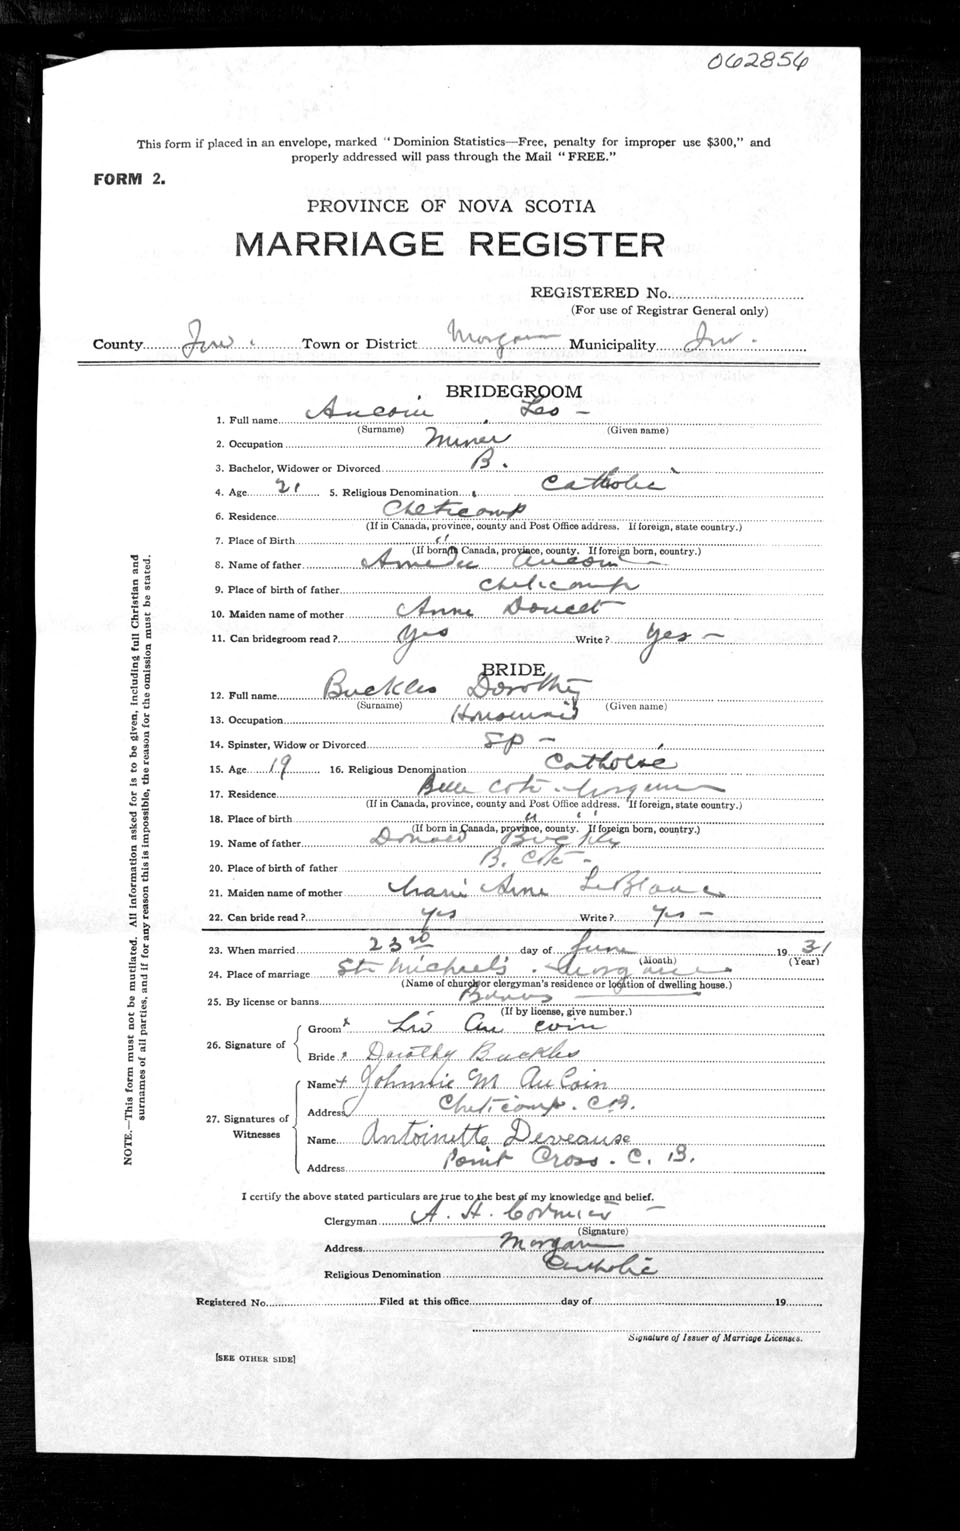 062856
This form if placed in an envelope, marked "Dominion Statistics—Free, penalty for improper use $300," and
properly addressed will pass through the Mail "FREE."
FORM 2.
PROVINCE OF NOVA SCOTIA
MARRIAGE REGISTER
REGISTERED No.
(For use of Registrar General only)
County Inv. Town or District Morgan Municipality Inv.
BRIDEGROOM
1. Full name Aucoin, Leo –
(Surname) (Given name)
2. Occupation Miner
3. Bachelor, Widower or Divorced B.
4. Age 21 5. Religious Denomination Catholic
6. Residence Cheticamp
(If in Canada, province, county and Post Office address. If foreign, state country.)
7. Place of Birth "
(If born in Canada, province, county. If foreign born, country.)
8. Name of father Amedee Aucoin –
9. Place of birth of father Cheticamp
10. Maiden name of mother Anne Doucet
11. Can bridegroom read? Yes Write? Yes –
BRIDE
12. Full name Buckles Dorothy
(Surname) (Given name)
13. Occupation Housemaid
14. Spinster, Widow or Divorced Sp –
15. Age 19 16. Religious Denomination Catholic
17. Residence Belle Cote
(If in Canada, province, county and Post Office address. If foreign, state country.)
18. Place of birth " "
(If born in Canada, province, county. If foreign born, country.)
19. Name of father Donald
20. Place of birth of father B. Cote –
21. Maiden name of mother Marie Anne LeBlanc
22. Can bride read? Yes Write? Yes –
23. When married 23rd day of June 1931
(Month) (Year)
24. Place of marriage St. Michael's.
(Name of church or clergyman's residence or location of dwelling house.)
25. By license or banns Banns
(If by license, give number.)
26. Signature of
Groom x Leo Au coin
Bride x Dorothy Buckles
27. Signatures of Witnesses
Name x Johnnie M AuCoin
Address Cheticamp. C.B.
Name Antoinette Deveause
Address Point Cross. C. B.
I certify the above stated particulars are true to the best of my knowledge and belief.
Clergyman A. H. Cormier –
(Signature)
Address Morgan
Religious Denomination Catholic
Registered No. Filed at this office day of 19
Signature of Issuer of Marriage Licenses.
[SEE OTHER SIDE]
NOTE.—This form must not be mutilated. All information asked for is to be given, including full Christian and
surnames of all parties, and if for any reason this is impossible, the reason for the omission must be stated.